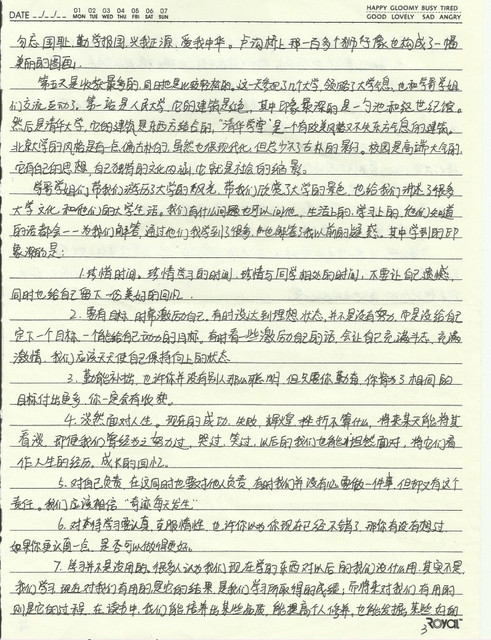 DATE / /
01 02 03 04 05 06 07
MON TUE WED THU FRI SAT SUN
HAPPY GLOOMY BUSY TIRED
GOOD LOVELY SAD ANGRY
勿忘国耻,勤学报国,兴我正源,爱我中华。卢沟桥上那一百多个狮子像也构成了一幅
美丽的图画。
第五天是收获最多的,同时也是比较轻松的。这一天参观了几个大学,领略了大学信息,也和学哥学姐
们交流互动了。第一站是人民大学,它的建筑是 其中印象最深的是一勺池和世纪馆。
然后是清华大学,它的建筑是东西方结合的,"清华学堂"是一个有欧美风格又不失东方气息的建筑。
北京大学的风格是有一点偏古朴的,虽然也很现代化,但尽少不了古朴的景色。校园是高端大气的,
它有自己的思想,自己独特的文化内涵,它就是社会的缩影。
学哥学姐们带我们游历了大学的风光,带我们欣赏了大学的景色,也给我们讲述了很多
大学文化和他们的大学生活。我们有什么问题也可以问他,生活上的,学习上的,他们知道
的话都会一一为我们解答,通过他们我学到了很多,也解答了我以前的疑惑。其中学到的印
象深的是:
1.珍惜时间。珍惜学习的时间,珍惜与同学相处的时间,不要让自己遗憾,
同时也给自己留下一份美好的回忆。
2.要有目标,时常激励自己。有时没达到理想状态,并不是没有努力,而是没给自己
定下一个目标,一个能给自己动力的目标。有时看一些激励自己的话,会让自己充满斗志,充满
激情,我们应该天天使自己保持向上的状态。
3.勤能补拙,也许你并没有别人那么聪明,但只要你勤奋,你肯为了相同的
目标付出更多,你一定会有收获。
4.淡然面对人生。现在的成功,失败,辉煌,挫折不算什么,将来某天能将其
看淡,即便我们曾经为之努力过,哭过,笑过,以后的我们也能坦然面对,将它们看
作人生的经历,成长的回忆。
5.对自己负责,在这同时也要对他人负责,有时我们并没有心要做一件事,但却又有这个
责任。我们应该相信"奇迹每天发生"
6.对待学习要认真,克服惰性,也许你以为你现在已经不错了,那你有没有想过
如果你更认真一点,是否可以做得更好。
7.学习并不是没用的。很多人认为我们现在学的东西对以后的我们没什么用,其实不是,
我们学习,现在对我们有用的是它的结果,是我们学习所取得的成绩;而将来对我们有用的
则是它的过程,在读书中,我们能培养出某些品质,能提高个人修养,也能发掘某些内在的
3
ROYAL